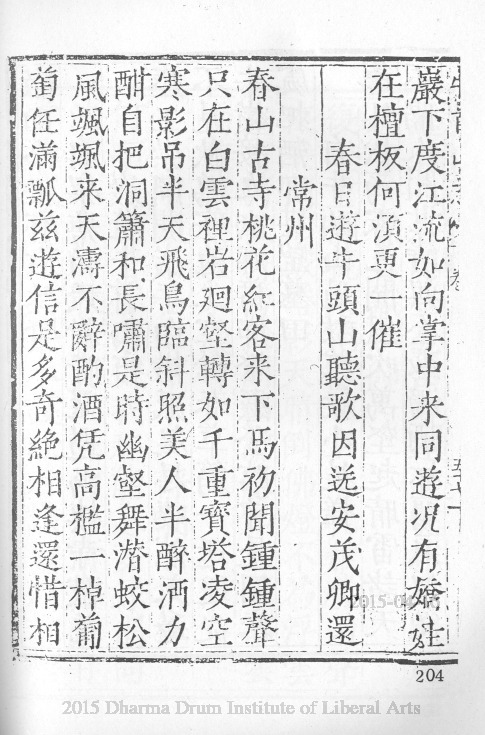 巖下度江流如向掌中来同遊况有
在檀板何須更一催
春日遊牛頭山聽歌因送安茂卿還
常州
春山古寺桃花紅客来下馬初聞鍾鍾聲
只在白雲裡岩廻壑轉如千重寶塔凌空
寒影吊半天飛鳥臨斜照美人半醉洒力
酣自把洞簫和長嘯是時幽壑舞潜蛟松
風颯颯来天濤不辭酌酒凭高檻一棹蔔
蔔任滿瓢兹遊信是多奇絶相逢還惜相
204
2015 Dharma Drum Institute of Liberal Arts